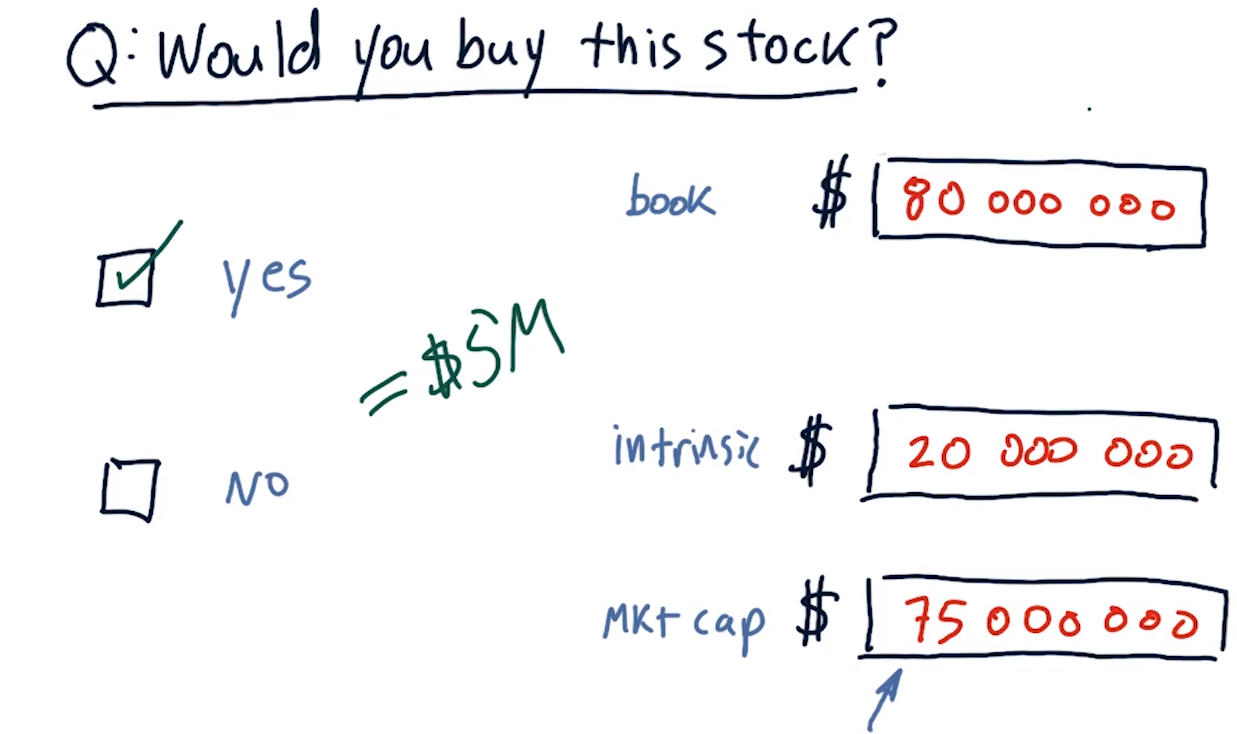 Q: Would you buy this stock?
book $ 80 000 000
yes
= $5M
intrinsic $ 20 000 000
NO
MKt cap $ 75 000 000